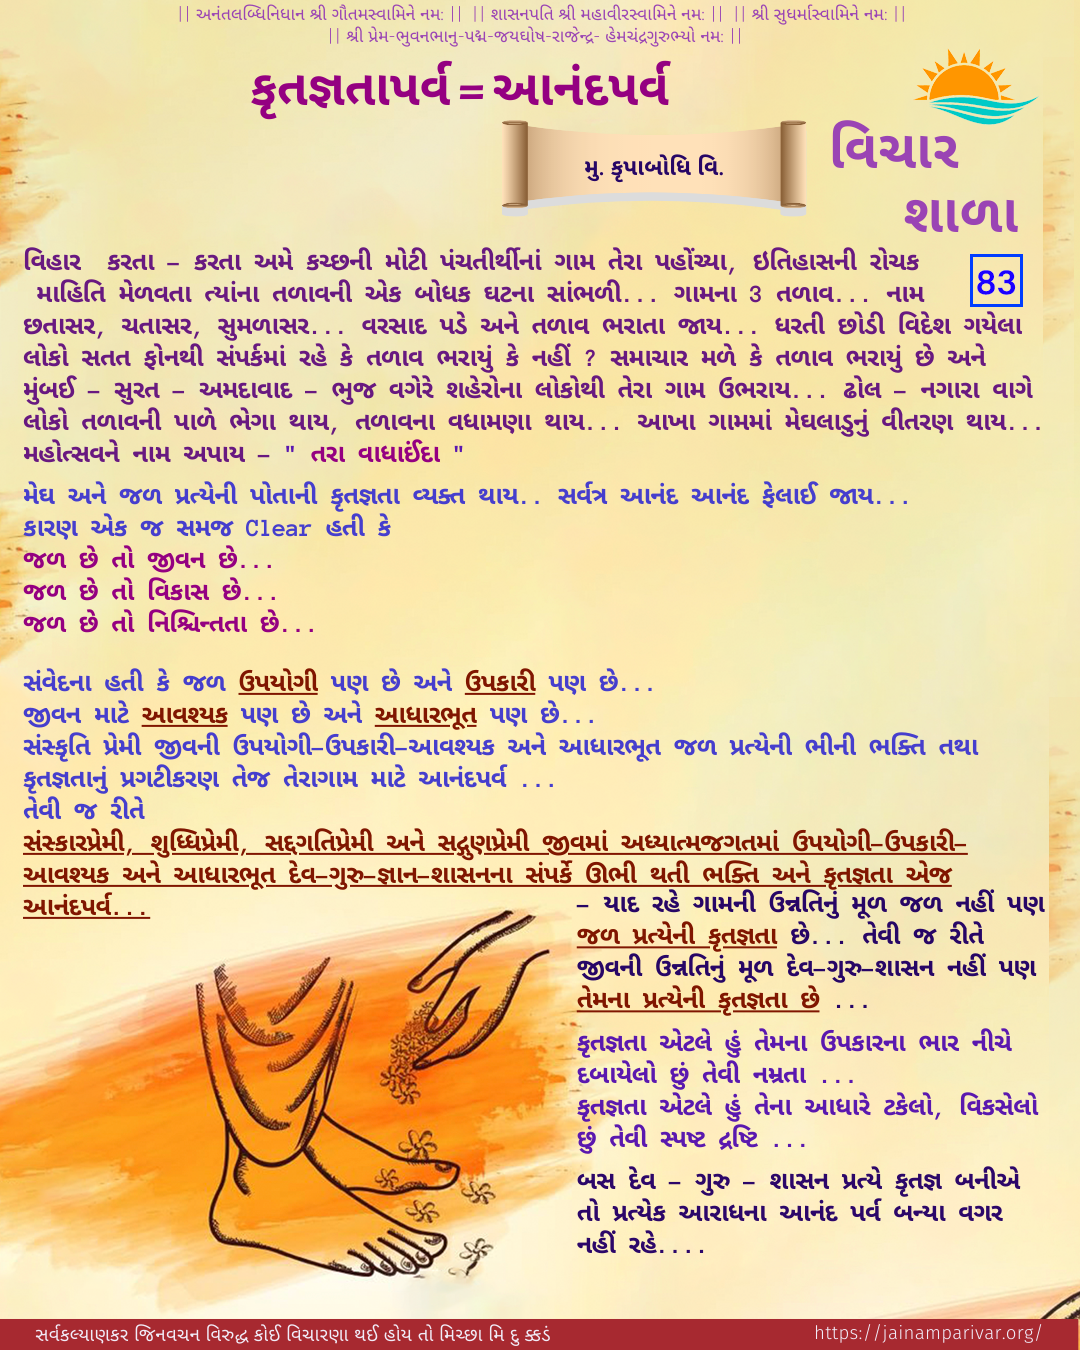 || અનંતલબ્ધિનિધાન શ્રી ગૌતમસ્વામિને નમ: || || શાસનપતિ શ્રી મહાવીરસ્વામિને નમ: || || શ્રી સુધર્માસ્વામિને નમ: ||
|| શ્રી પ્રેમ-ભુવનભાનુ-પદ્મ-જયઘોષ-રાજેન્દ્ર- હેમચંદ્રગુરુભ્યો નમ: ||
કૃતજ્ઞતાપર્વ = આનંદપર્વ
મુ. કૃપાબોધિ વિ.
વિચાર
શાળા
83
વિહાર કરતા – કરતા અમે કચ્છની મોટી પંચતીર્થીનાં ગામ તેરા પહોંચ્યા, ઇતિહાસની રોચક
માહિતિ મેળવતા ત્યાંના તળાવની એક બોધક ઘટના સાંભળી... ગામના 3 તળાવ... નામ
છતાસર, ચતાસર, સુમળાસર... વરસાદ પડે અને તળાવ ભરાતા જાય... ધરતી છોડી વિદેશ ગયેલા
લોકો સતત ફોનથી સંપર્કમાં રહે કે તળાવ ભરાયું કે નહીં ? સમાચાર મળે કે તળાવ ભરાયું છે અને
મુંબઈ – સુરત – અમદાવાદ – ભુજ વગેરે શહેરોના લોકોથી તેરા ગામ ઉભરાય... ઢોલ – નગારા વાગે
લોકો તળાવની પાળે ભેગા થાય, તળાવના વધામણા થાય... આખા ગામમાં મેઘલાડુનું વીતરણ થાય...
મહોત્સવને નામ અપાય – " તરા વાધાઈંદા "
મેઘ અને જળ પ્રત્યેની પોતાની કૃતજ્ઞતા વ્યક્ત થાય.. સર્વત્ર આનંદ આનંદ ફેલાઈ જાય...
કારણ એક જ સમજ Clear હતી કે
જળ છે તો જીવન છે...
જળ છે તો વિકાસ છે...
જળ છે તો નિશ્ચિન્તતા છે...
સંવેદના હતી કે જળ ઉપયોગી પણ છે અને ઉપકારી પણ છે...
જીવન માટે આવશ્યક પણ છે અને આધારભૂત પણ છે...
સંસ્કૃતિ પ્રેમી જીવની ઉપયોગી–ઉપકારી–આવશ્યક અને આધારભૂત જળ પ્રત્યેની ભીની ભક્તિ તથા
કૃતજ્ઞતાનું પ્રગટીકરણ તેજ તેરાગામ માટે આનંદપર્વ ...
તેવી જ રીતે
સંસ્કારપ્રેમી, શુધ્ધિપ્રેમી, સદ્દગતિપ્રેમી અને સદ્ગુણપ્રેમી જીવમાં અધ્યાત્મજગતમાં ઉપયોગી–ઉપકારી–
આવશ્યક અને આધારભૂત દેવ–ગુરુ–જ્ઞાન–શાસનના સંપર્કે ઊભી થતી ભક્તિ અને કૃતજ્ઞતા એજ
આનંદપર્વ...
– યાદ રહે ગામની ઉન્નતિનું મૂળ જળ નહીં પણ
જળ પ્રત્યેની કૃતજ્ઞતા છે... તેવી જ રીતે
જીવની ઉન્નતિનું મૂળ દેવ–ગુરુ–શાસન નહીં પણ
તેમના પ્રત્યેની કૃતજ્ઞતા છે ...
કૃતજ્ઞતા એટલે હું તેમના ઉપકારના ભાર નીચે
દબાયેલો છું તેવી નમ્રતા ...
કૃતજ્ઞતા એટલે હું તેના આધારે ટકેલો, વિકસેલો
છું તેવી સ્પષ્ટ દ્રષ્ટિ ...
બસ દેવ – ગુરુ – શાસન પ્રત્યે કૃતજ્ઞ બનીએ
તો પ્રત્યેક આરાધના આનંદ પર્વ બન્યા વગર
નહીં રહે....
સર્વકલ્યાણકર જિનવચન વિરુદ્ધ કોઈ વિચારણા થઈ હોય તો મિચ્છા મિ દુ ક્કડં
https://jainamparivar.org/